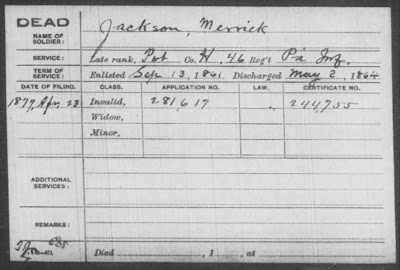 DEAD
NAME OF SOLDIER: Jackson, Merrick
SERVICE: Late rank, Pvt Co. H, 46 Reg't Pa Inf.
TERM OF SERVICE: Enlisted Sep 13, 1861 Discharged May 2, 1864
DATE OF FILING. CLASS. APPLICATION NO. LAW. CERTIFICATE NO.
1879, Apr. 23 Invalid, 281,617 244,755
Widow,
Minor,
ADDITIONAL SERVICES:
REMARKS:
Died , 1 , at